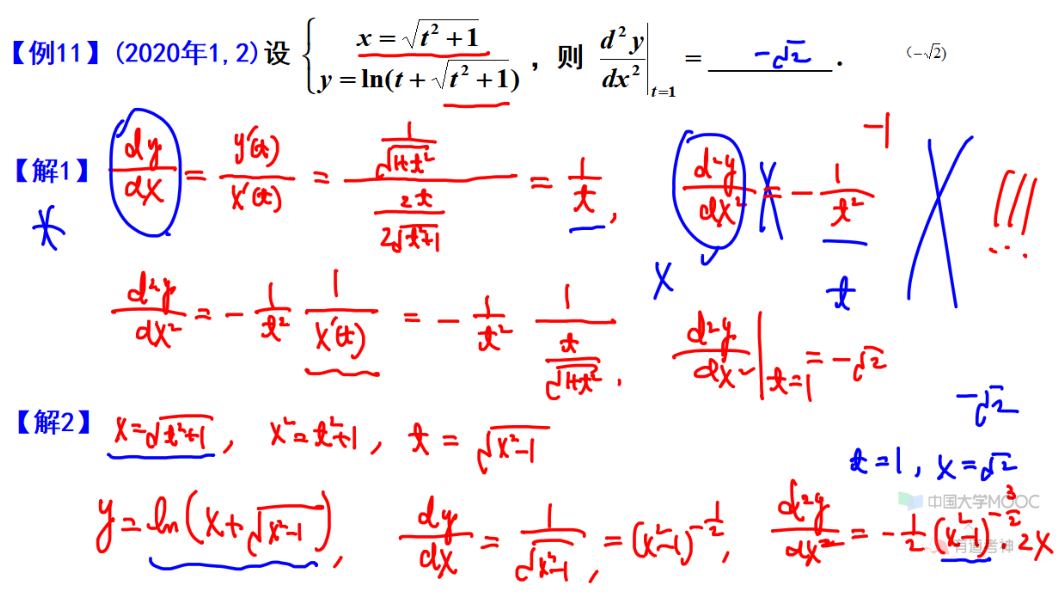 【例11】(2020年1,2) 设 { x = √(t² + 1) , y = ln(t + √(t² + 1)) , 则 d²y/dx² |_{t=1} = -√2 . (-√2)
【解1】 dy/dx = y'(t)/x'(t) = (1/√(1+t²))/(2t/(2√(t²+1))) = 1/t , d²y/dx² = - 1/t² -1 !!!
x t
d²y/dx² = - 1/t² 1/x'(t) = - 1/t² 1/(t/√(1+t²)) . d²y/dx² |_{t=1} = -√2
【解2】 x = √(t²+1) , x² = t²+1 , t = √(x²-1) -√2
t = 1 , x = √2
中国大学MOOC
y = ln(x + √(x²-1)) , dy/dx = 1/√(x²-1) , = (x²-1)^{-1/2} , d²y/dx² = - 1/2 (x²-1)^{-3/2} · 2x
有道考神